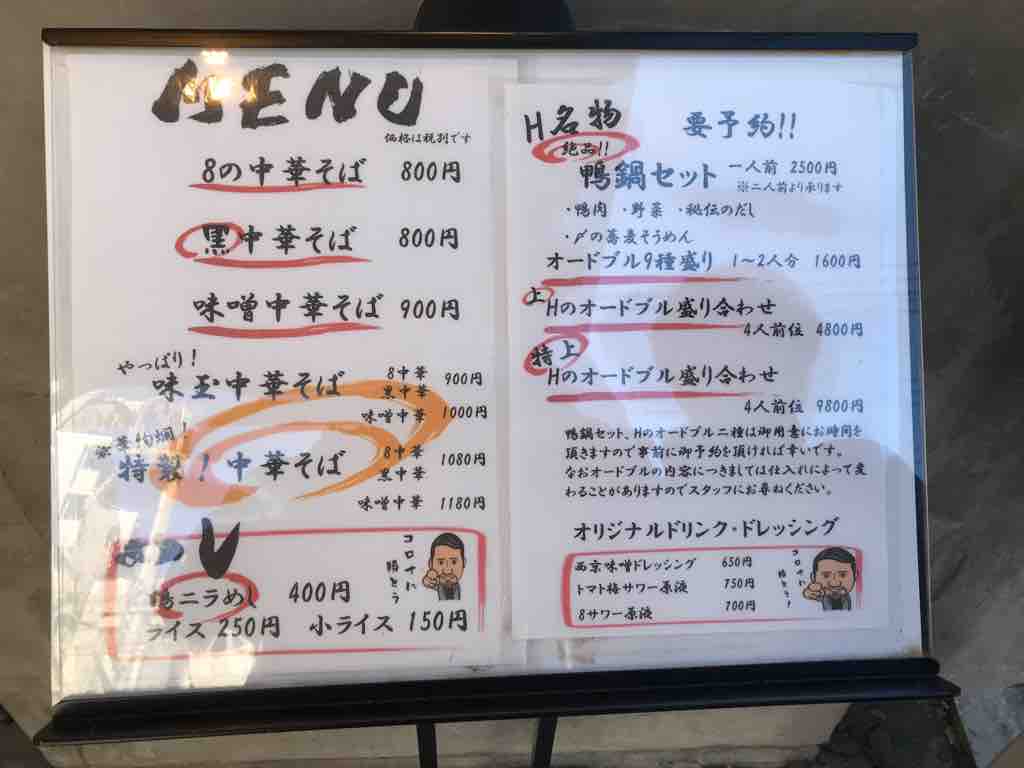 MENU
価格は税別です
8の中華そば 800円
黒中華そば 800円
味噌中華そば 900円
やっぱり!
味玉中華そば 8中華 黒中華 900円
味噌中華 1000円
特製!中華そば 8中華 黒中華 1080円
味噌中華 1180円
めし
コロナに
勝とう
ニラめし 400円
ライス 250円 小ライス 150円
H名物 要予約!!
絶品!!
鴨鍋セット 一人前 2500円
※二人前より承ります
・鴨肉 ・野菜 ・秘伝のだし
・〆の蕎麦そうめん
オードブル9種盛り 1〜2人分 1600円
上
Hのオードブル盛り合わせ
4人前位 4800円
特上
Hのオードブル盛り合わせ
4人前位 9800円
鴨鍋セット、Hのオードブル二種は御用意にお時間を
頂きますので事前に御予約を頂ければ幸いです。
なおオードブルの内容につきましては仕入れによって変
わることがありますのでスタッフにお尋ねください。
オリジナルドリンク・ドレッシング
西京味噌ドレッシング 650円
トマト梅サワー原液 750円
8サワー原液 700円
コロナに
勝とう!